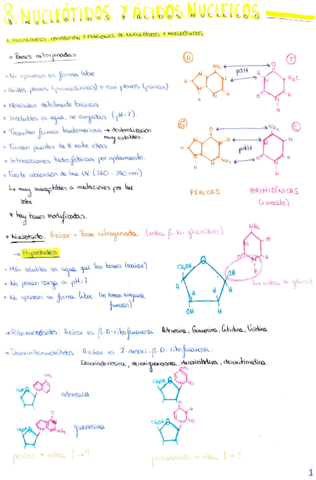 8. NUCLEÓTIDOS Y ÁCIDOS NUCLEICOS
1. PROPIEDADES, COMPOSICIÓN Y FUNCIONES DE NUCLEÓTIDOS Y NUCLEÓSIDOS
• Bases nitrogenadas
• No aparecen en forma libre
• Anillos planos (pirimidínicas) o casi planos (púricas)
• Moléculas débilmente básicas
• Insolubles en agua, no cargadas (pH=7).
• Presentan formas tautoméricas →
• Forman puentes de H entre ellas
• Interacciones hidrofóbicas por apilamiento.
• Fuerte absorción de luz UV (260-280 nm)
↳ muy susceptibles a mutaciones por luz
* hay bases modificadas.
A
T
pdH
G
C
pdH
PÚRICAS
PIRIMIDÍNICAS
(+ uracilo)
• Nucleósido: Azúcar + Base nitrogenada (enlace β-N-glucosídico)
→ Propiedades
• Más solubles en agua que las bases (azúcar)
• No poseen carga a pH=7.
• No aparecen en forma libre (no tienen ninguna función)
NH₂
CH₂OH
O
OH
H
→ Ribonucleósidos: Azúcar es β-D-ribofuranosa. Adenosina, Guanosina, Citidina, Uridina.
→ Desoxirribonucleósidos: Azúcar es 2'-desoxi-β-D-ribofuranosa.
Desoxiadenosina, desoxiguanosina, desoxicitidina, desoxitimidina
adenosina
guanosina
púricas → enlace 1 → 9
pirimidínicas → enlace 1 → 1
1